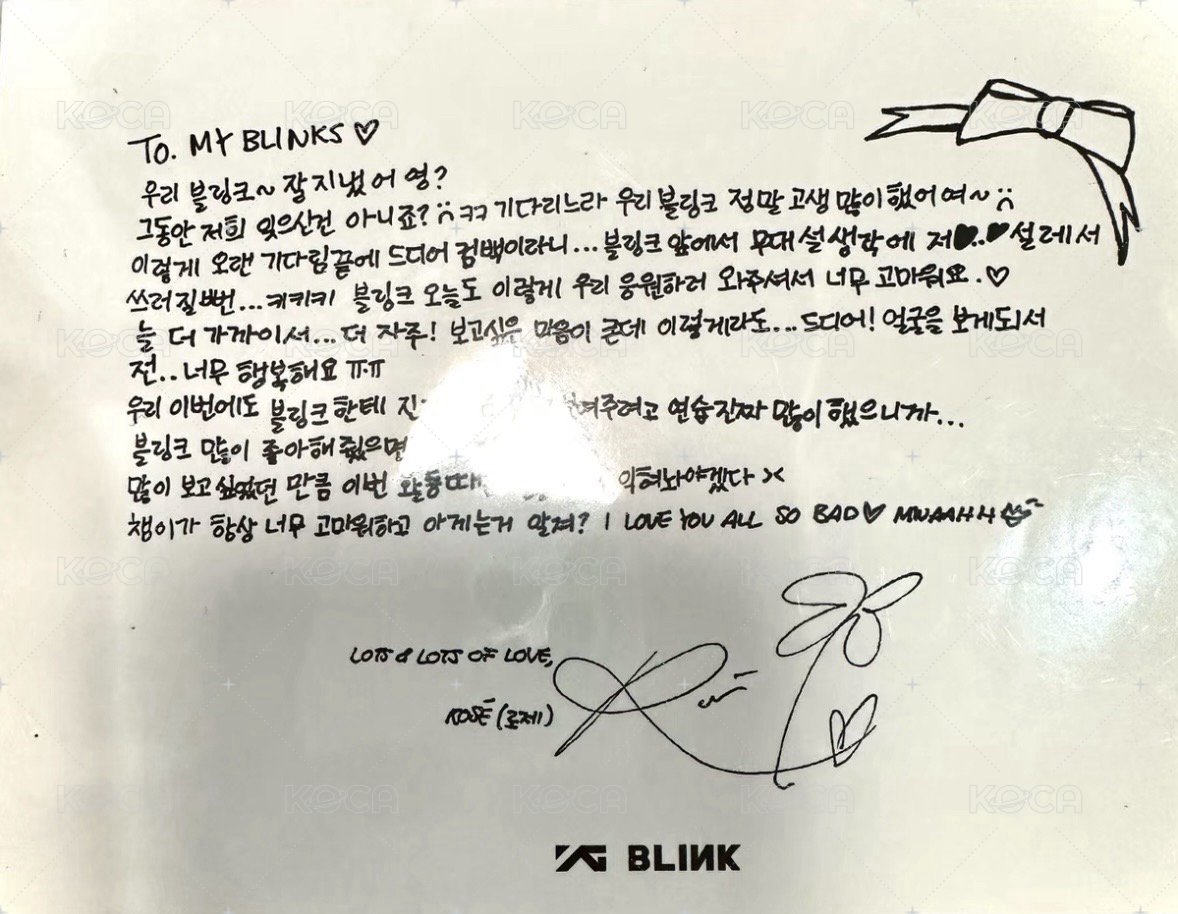 TO. MY BLINKS♡
우리 블링크~ 잘 지냈어영?
그동안 저희 잊으신건 아니죠? ㅋㅋ 기다리느라 우리 블링크 정말 고생 많이 했어여~
이렇게 오랜 기다림끝에 드디어 컴백이라니... 블링크 앞에서 무대 설 생각에 저♥..♥ 설레서
쓰러질뻔... 키키키 블링크 오늘도 이렇게 우리 응원하러 와주셔서 너무 고마워요.♡
늘 더 가까이서... 더 자주! 보고싶은 마음이 큰데 이렇게라도... 드디어! 얼굴을 보게되서
전.. 너무 행복해요 ㅠ.ㅠ
우리 이번에도 블링크한테 여주려고 연습 진짜 많이 했으니까...
블링크 많이 좋아해줬으면
많이 보고싶었던 만큼 이번 활동때 익혀놔야겠다 ><
챙이가 항상 너무 고마워하고 아게는거 알져? I LOVE YOU ALL SO BAD♡ MWAAHH
LOTS & LOTS OF LOVE,
ROSÉ (로제)
YG BLINK
KOCA